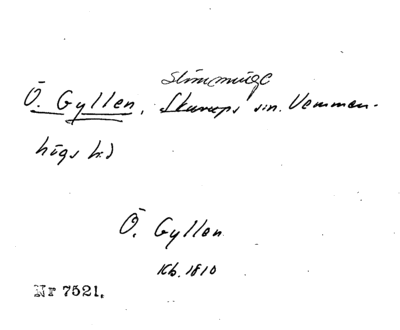 Slimminge
Ö. Gyllen, Skurups sn. Vemmen-
högs hd
Ö. Gyllen
Kb. 1810
Nr 7521.